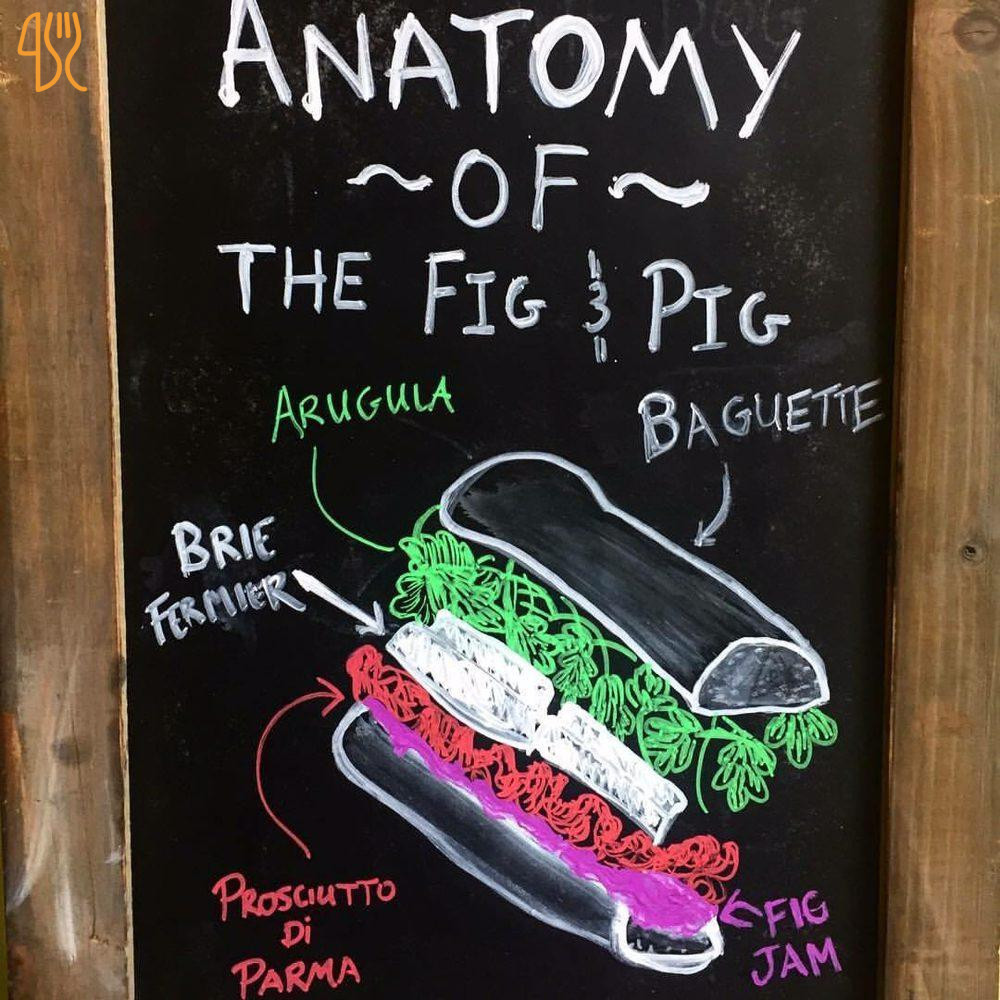 ANATOMY
~OF~
THE FIG & PIG
ARUGULA
BAGUETTE
BRIE
FERMIER
PROSCIUTTO
DI
PARMA
FIG
JAM